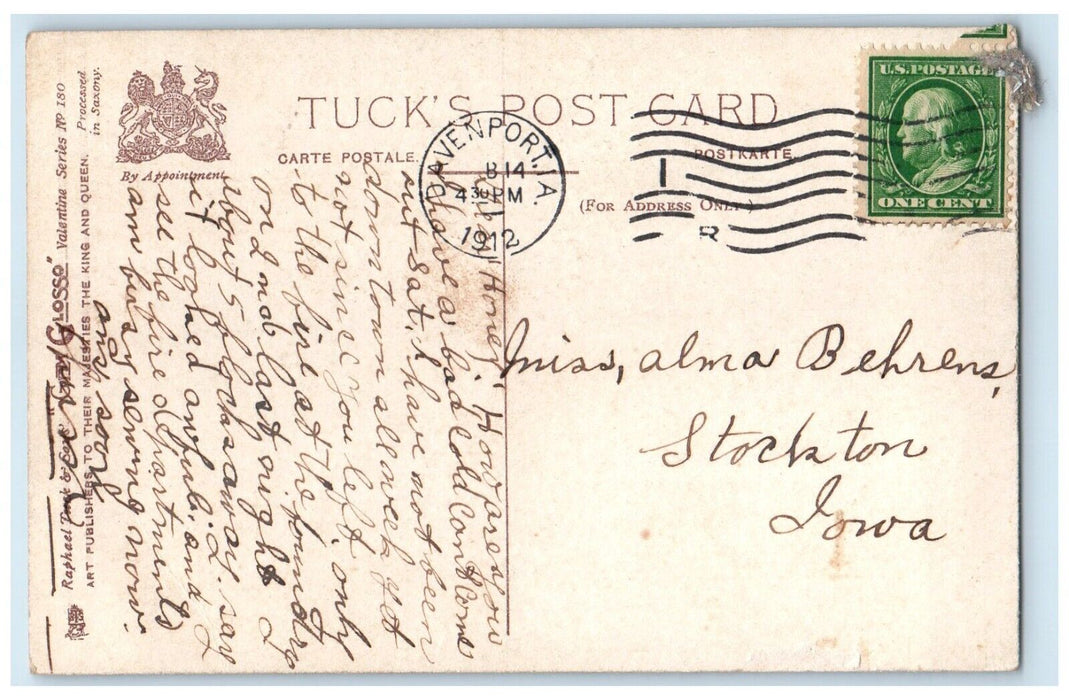 TUCK'S POST CARD
CARTE POSTALE.
POSTKARTE.
(FOR ADDRESS ONLY)
By Appointment
DAVENPORT, IA
B 14
4 30 PM
1912
1
R
U.S. POSTAGE
ONE CENT
Raphael Tuck & Sons' "GLOSSO" Valentine Series No 180
ART PUBLISHERS TO THEIR MAJESTIES THE KING AND QUEEN.
Processed
in Saxony.
Miss, Alma Behrens,
Stockton
Iowa
Honey, How are you
I have a bad cold can't come
out Sat. I have not been
downtown all week yet
not since you left, only
to the fire at the foundry
on 2nd last night I
about 5 blocks away. saw
it looked awful, and I
see the fire departments
am busy sewing now.